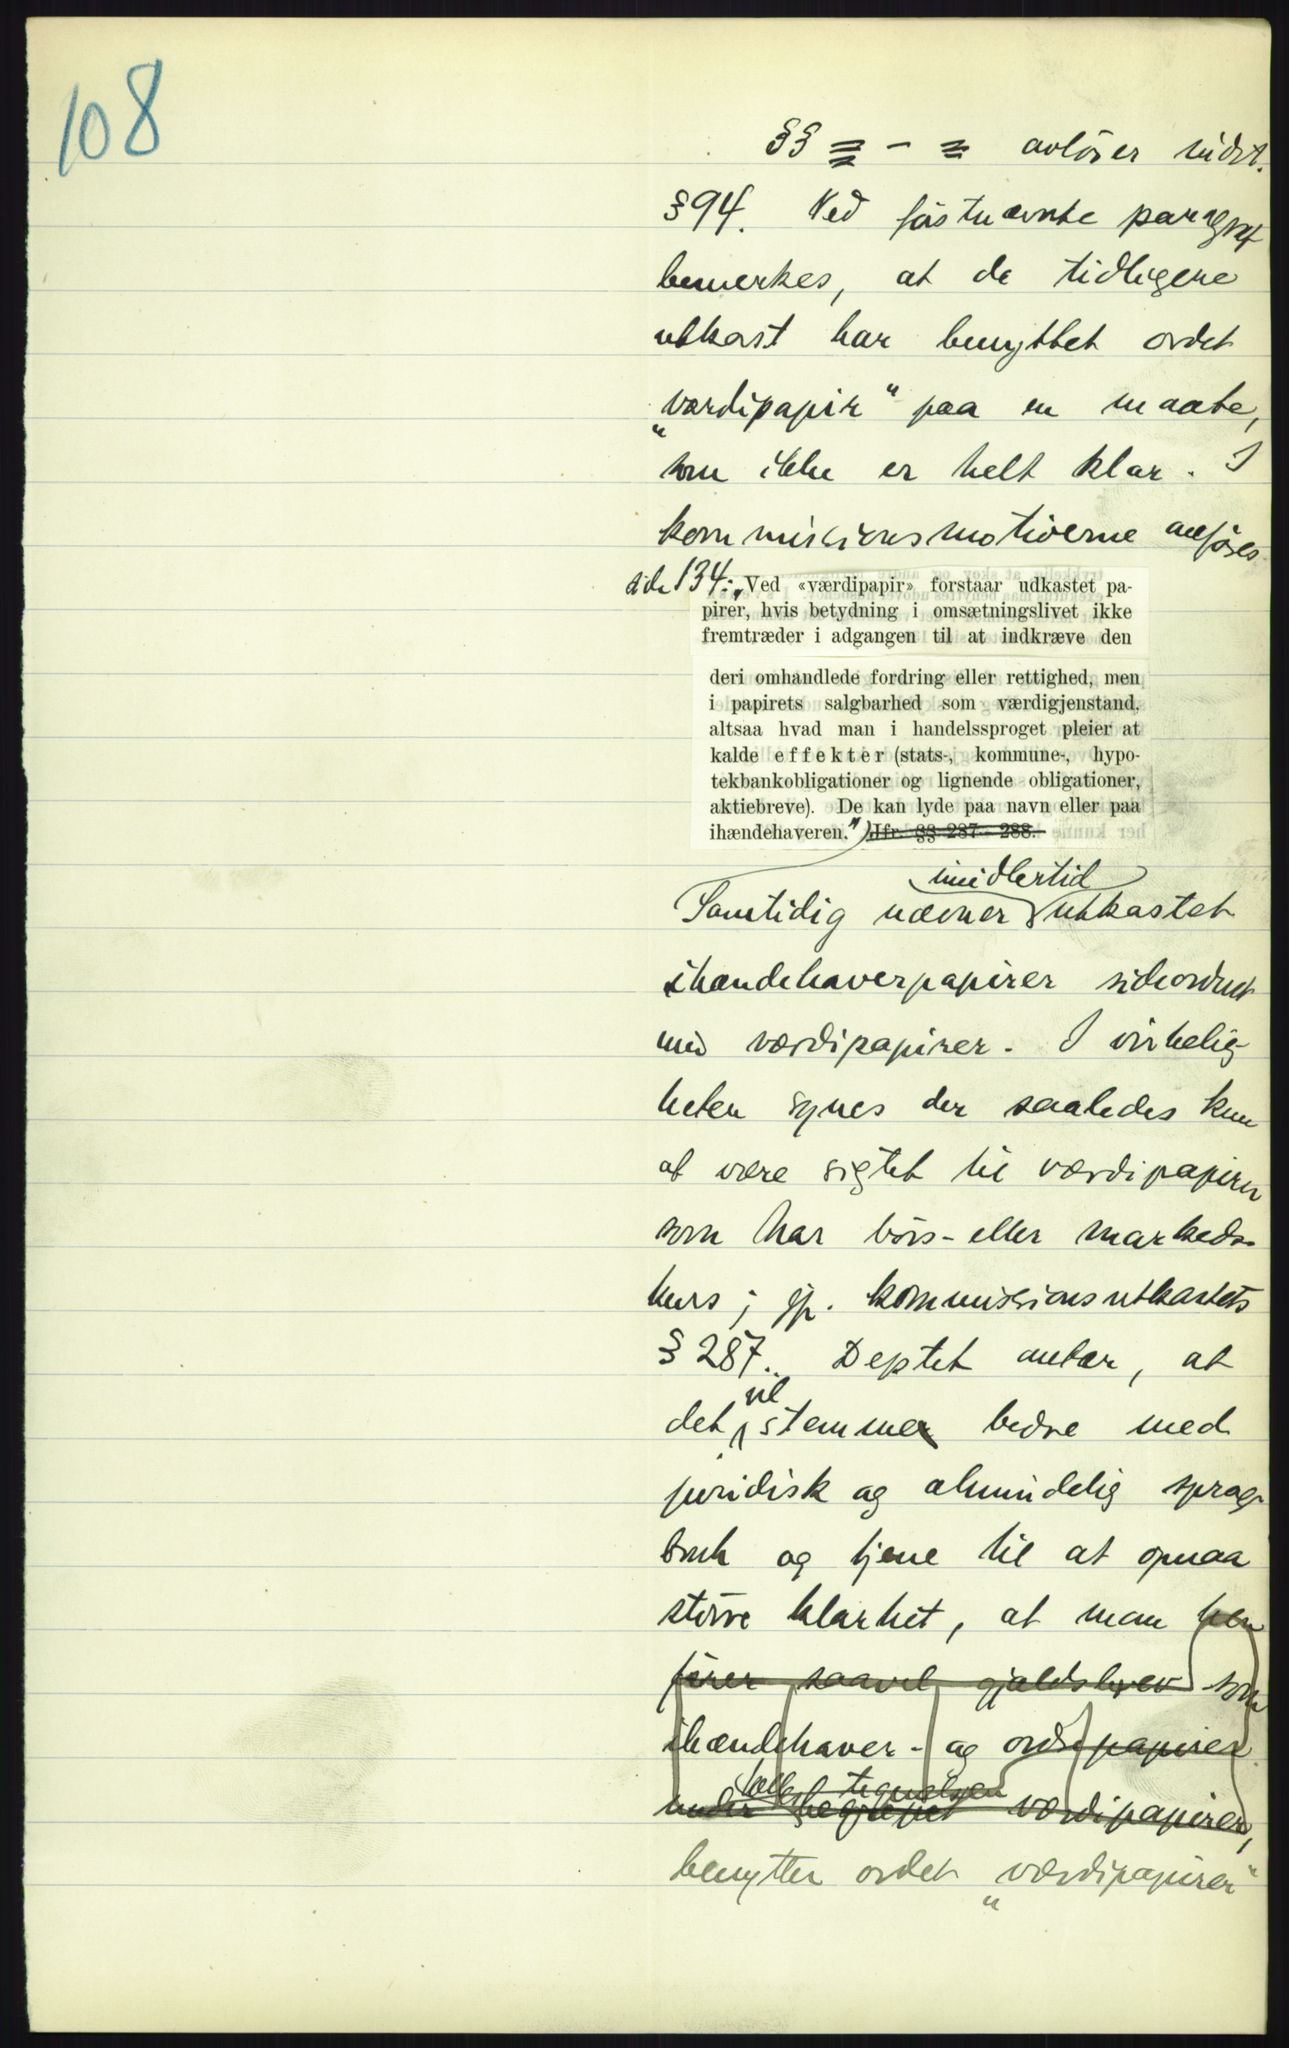 108
§§ = - = avløser midt.
§ 94. Ved førstnævnte paragraf
bemerkes, at de tidligere
utkast har benyttet ordet
„værdipapir“ paa en maate,
som ikke er helt klar. I
kommissionsmotiverne anføres
side 134: „Ved «værdipapir» forstaar udkastet pa-
pirer, hvis betydning i omsætningslivet ikke
fremtræder i adgangen til at indkræve den
deri omhandlede fordring eller rettighed, men
i papirets salgbarhed som værdigjenstand,
altsaa hvad man i handelssproget pleier at
kalde effekter (stats-, kommune-, hypo-
tekbankobligationer og lignende obligationer,
aktiebreve). De kan lyde paa navn eller paa
ihændehaveren.“ Jfr. §§ 287–288.
imidlertid
Samtidig nævner utkastet
ihændehaverpapirer sideordnet
med værdipapirer. I virkelig-
heten synes der saaledes kun
at være sigtet til værdipapirer
som har børs- eller markeds-
kurs; jfr. kommissionsutkastets
§ 287. Deptet antar, at
vil
det stemme bedre med
juridisk og almindelig sprog-
bruk og tjene til at opnaa
større klarhet, at man hen
fører saavel gjældsbrev som
ihændehaver- og ordrepapirer
tegnelsen
under begrepet værdipapirer,
benytter ordet „værdipapirer“